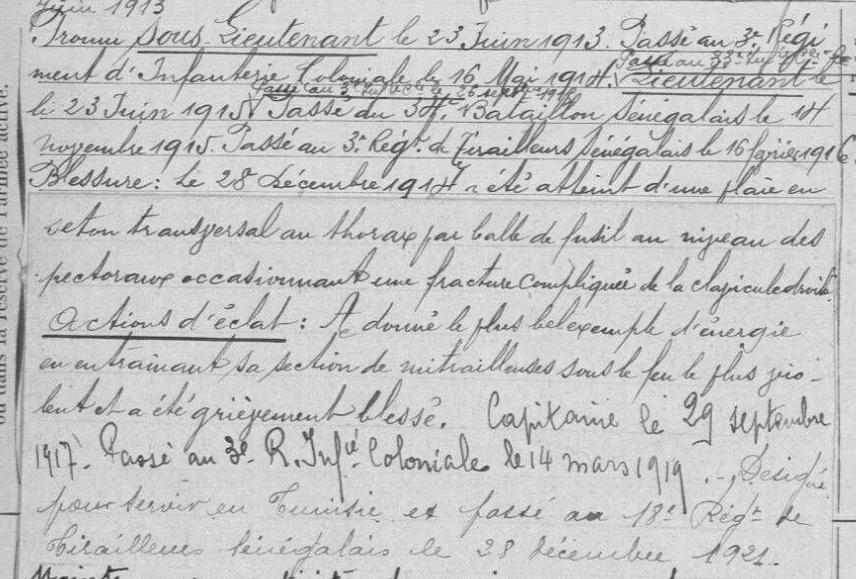 Juin 1913
Promu Sous Lieutenant le 23 Juin 1913. Passé au 3e Régi
ment d'Infanterie Coloniale le 16 Mai 1914. Lieutenant le
Passé au 3e
le 23 Juin 1915 Passé du 34e Bataillon Sénégalais le 14
novembre 1915. Passé au 3e Régt de Tirailleurs Sénégalais le 16 février 1916
Blessure : Le 28 Décembre 1914 a été atteint d'une plaie en
seton transversal au thorax par balle de fusil au niveau des
pectoraux occasionnant une fracture compliquée de la clavicule droite.
Actions d'éclat : A donné le plus bel exemple d'énergie
en entrainant sa section de mitrailleuses sous le feu le plus vio-
lent et a été grièvement blessé. Capitaine le 29 septembre
1917. Passé au 3e R. Infie Coloniale le 14 mars 1919. - Désigné
pour servir en Tunisie et passé au 18e Régt de
Tirailleurs Sénégalais le 28 décembre 1921.
ou dans la réserve de l'armée active.